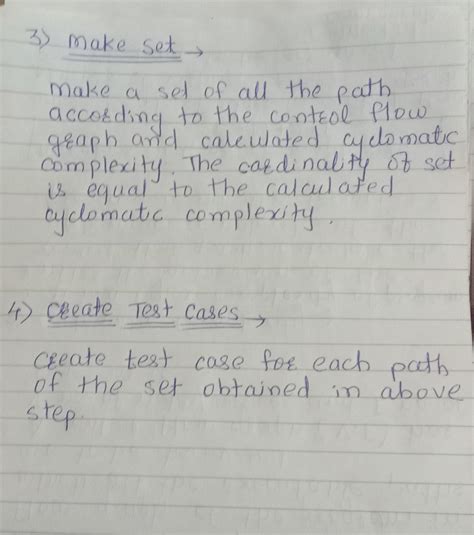 3) Make Set →
Make a set of all the path
according to the control flow
graph and calculated cyclomatic
complexity. The cardinality of set
is equal to the calculated
cyclomatic complexity.
4) Create Test Cases →
Create test case for each path
of the set obtained in above
step.